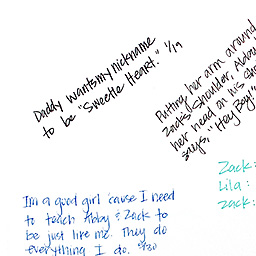 Daddy wants my nickname
to be "Sweetie Heart." 1/19
Putting her arm around
Zack's shoulder, Abby
her head on his sho
says, "Hey Boy"
Zack:
Lila:
Zack:
I'm a good girl 'cause I need
to teach Abby & Zack to
be just like me. They do
everything I do. 4/30